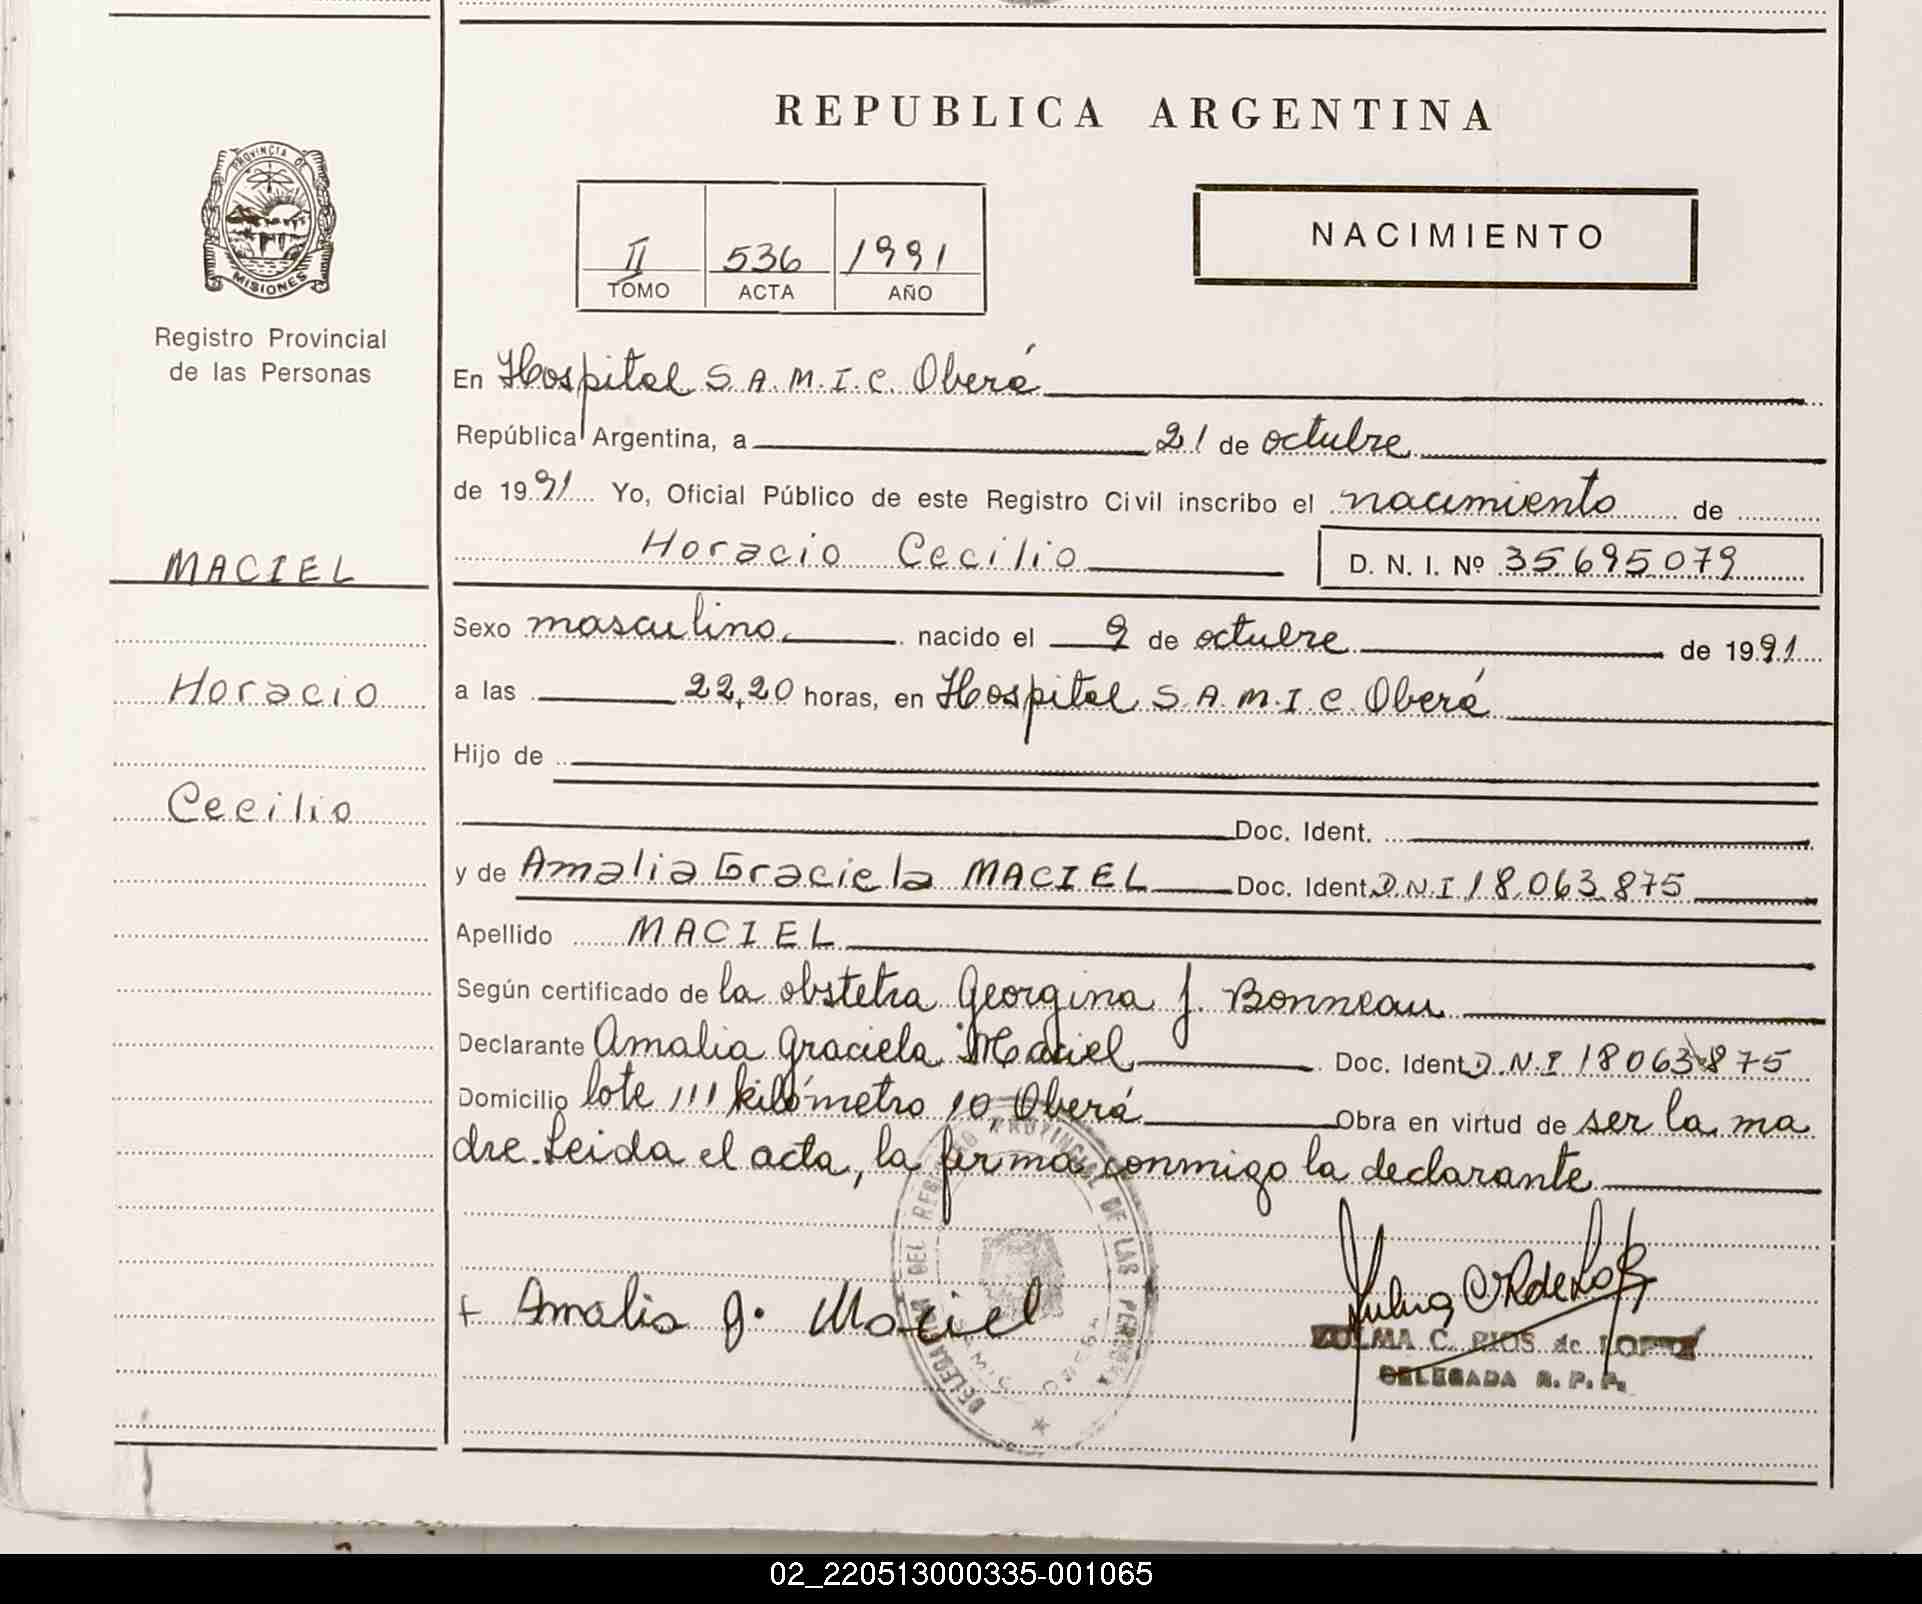 REPUBLICA ARGENTINA
PROVINCIA DE
MISIONES
Registro Provincial
de las Personas
II 536 1991
TOMO ACTA AÑO
NACIMIENTO
En Hospital S.A.M.I.C. Oberá
República Argentina, a 21 de octubre
de 1991 Yo, Oficial Público de este Registro Civil inscribo el nacimiento de
MACIEL
Horacio Cecilio D. N. I. Nº 35695079
Sexo masculino nacido el 9 de octubre de 1991
Horacio
a las 22,20 horas, en Hospital S.A.M.I.C. Oberá
Hijo de
Cecilio
Doc. Ident.
y de Amalia Graciela MACIEL Doc. Ident. D.N.I 18.063.875
Apellido MACIEL
Según certificado de la obstetra Georgina J. Bonneau
Declarante Amalia Graciela Maciel Doc. Ident. D.N.I 18063875
Domicilio lote 111 kilómetro 10, Oberá Obra en virtud de ser la ma
dre. Leida el acta, la firma conmigo la declarante
DELEGACION DEL REGISTRO PROVINCIAL DE LAS PERSONAS
+ Amalia G. Maciel
ZULMA C. RIOS de LOPEZ
DELEGADA R. P. P.
02_220513000335-001065